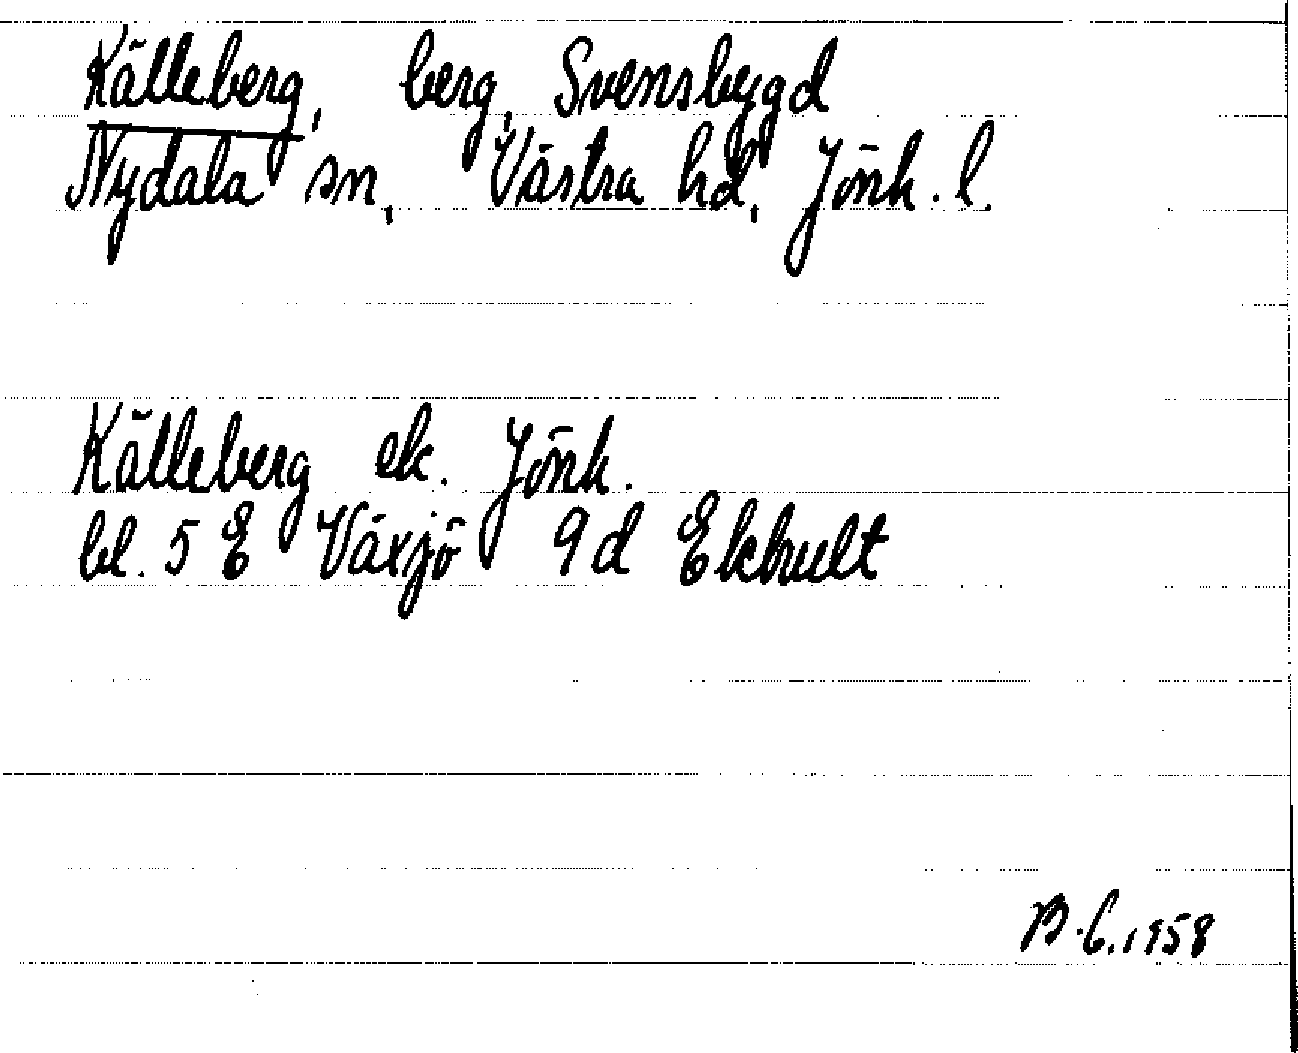 Källeberg, berg, Svensbygd
Nydala sn, Västra hd, Jönk. l.
Källeberg ek. Jönk.
bl. 5 E Växjö 9 d Ekhult
B.G. 1958